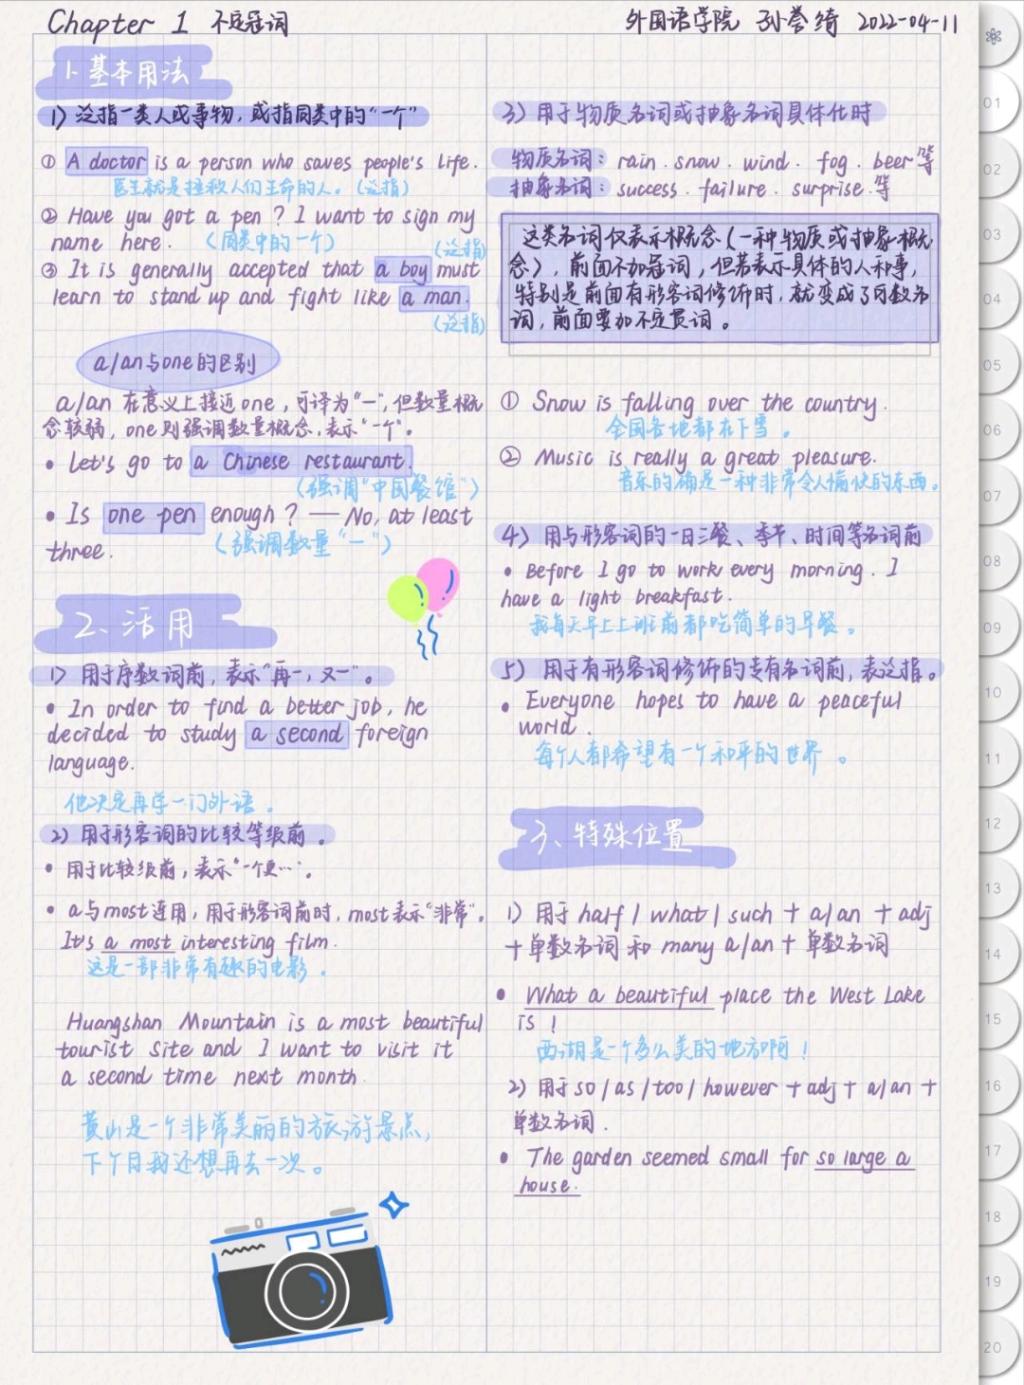 Chapter 1 不定冠词
外国语学院 孙誉绮 2022-04-11
1. 基本用法
1) 泛指一类人或事物，或指同类中的“一个”
① A doctor is a person who saves people's life.
医生就是拯救人们生命的人。(泛指)
② Have you got a pen ? I want to sign my
name here. (同类中的一个) (泛指)
③ It is generally accepted that a boy must
learn to stand up and fight like a man.
(泛指)
a/an与one的区别
a/an 在意义上接近one，可译为“一”，但数量概
念较弱，one则强调数量概念，表示“一个”。
• Let's go to a Chinese restaurant.
(强调“中国餐馆”)
• Is one pen enough ? — No, at least
three. (强调数量“一”)
2、活用
1) 用于序数词前，表示“再一，又一”。
• In order to find a better job, he
decided to study a second foreign
language.
他决定再学一门外语。
2) 用于形容词的比较等级前。
• 用于比较级前，表示“一个更…”。
• a与most连用，用于形容词前时，most表示“非常”。
It's a most interesting film.
这是一部非常有趣的电影。
Huangshan Mountain is a most beautiful
tourist site and I want to visit it
a second time next month.
黄山是一个非常美丽的旅游景点，
下个月我还想再去一次。
3) 用于物质名词或抽象名词具体化时
物质名词：rain . snow . wind . fog . beer等
抽象名词：success . failure . surprise .等
这类名词仅表示概念(一种物质或抽象概
念)，前面不加冠词，但若表示具体的人和事，
特别是前面有形容词修饰时，就变成了可数名
词，前面要加不定冠词。
① Snow is falling over the country.
全国各地都在下雪。
② Music is really a great pleasure.
音乐的确是一种非常令人愉快的东西。
4) 用与形容词的一日三餐、季节、时间等名词前
• Before I go to work every morning. I
have a light breakfast.
我每天早上上班前都吃简单的早餐。
5) 用于有形容词修饰的专有名词前，表泛指。
• Everyone hopes to have a peaceful
world.
每个人都希望有一个和平的世界。
3、特殊位置
1) 用于 half / what / such + a/an + adj
+ 单数名词 和 many a/an + 单数名词
• What a beautiful place the West Lake
is !
西湖是一个多么美的地方啊！
2) 用于 so / as / too / however + adj + a/an +
单数名词.
• The garden seemed small for so large a
house.
01
02
03
04
05
06
07
08
09
10
11
12
13
14
15
16
17
18
19
20